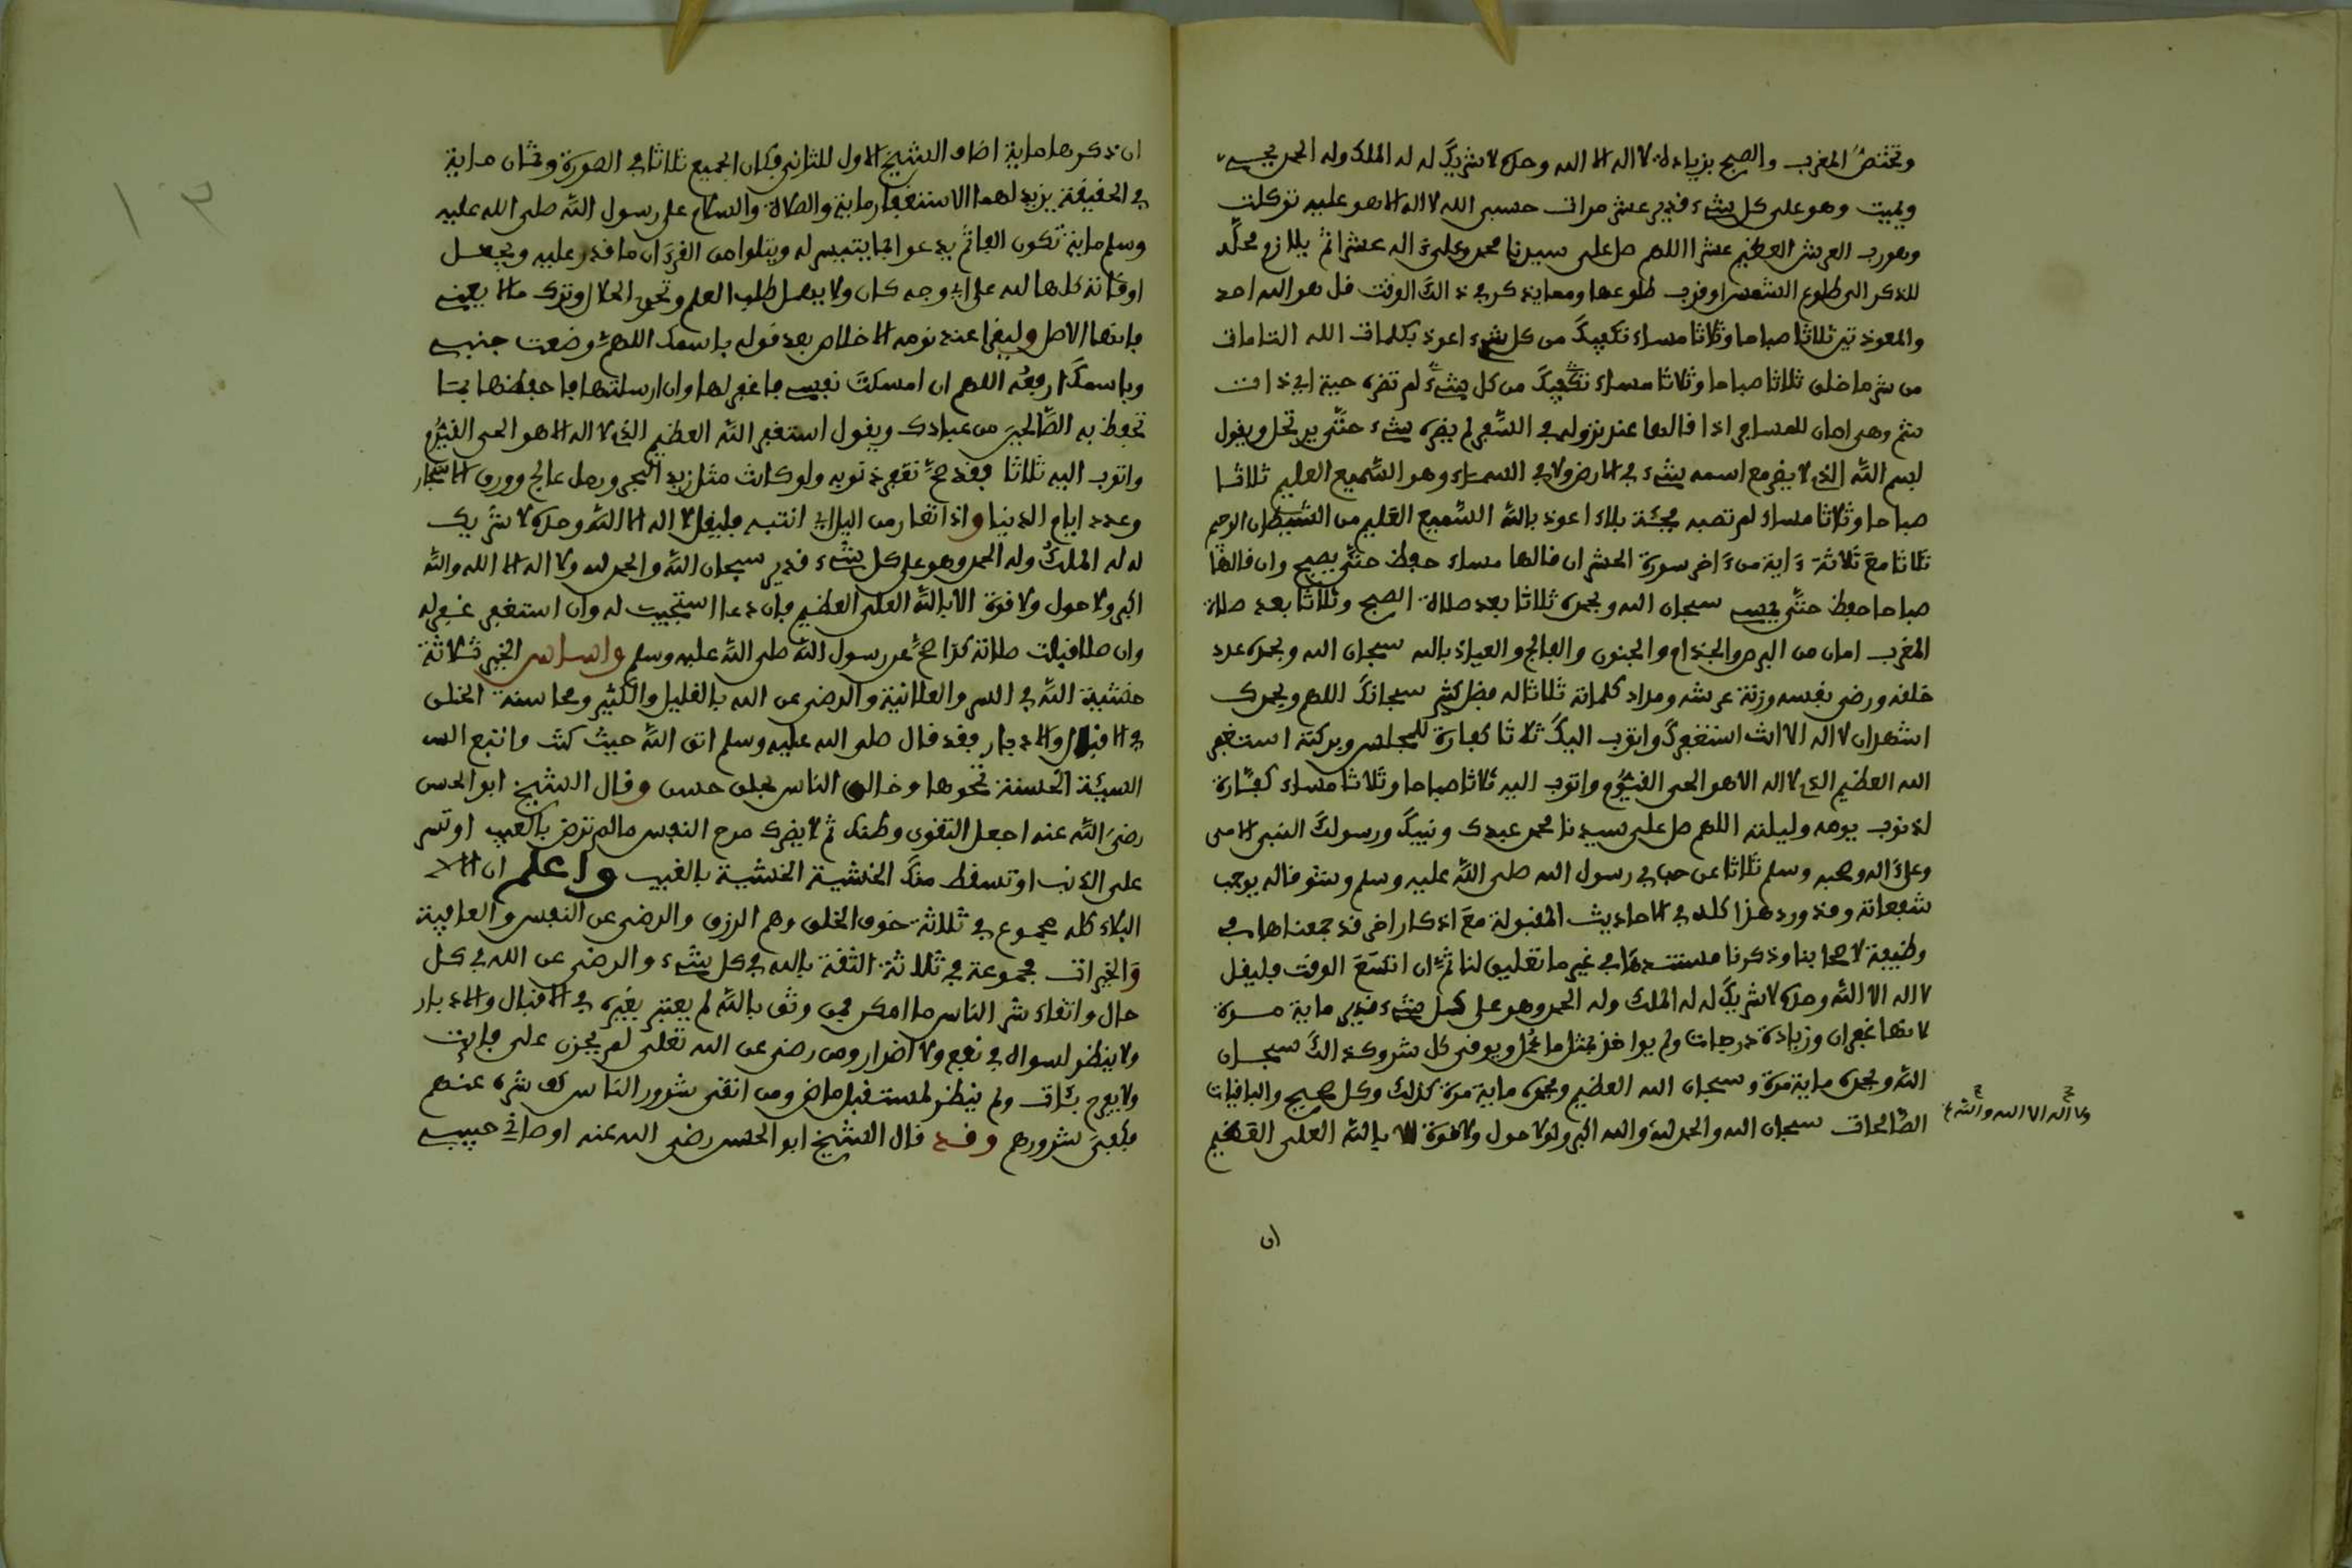 وتختص المغرب والصبح بزيادة لا اله الا الله وحده لا شريك له له الملك وله الحمد يحيي
ويميت وهو على كل شيء قدير عشر مرات حسبي الله لا اله الا هو عليه توكلت
وهو رب العرش العظيم عشرا اللهم صل على سيدنا محمد وعلى ءاله عشرا ثم يلازم محله
للذكر الى طلوع الشمس او قرب طلوعها ومما يذكر في ذالك الوقت قل هو الله احد
والمعوذتين ثلاثا صباحا وثلاثا مساء تكفيك من كل شيء اعوذ بكلمات الله التامات
من شر ما خلق ثلاثا صباحا وثلاثا مساء تكفيك من كل شيء لم تضره حية اي ذات
سم وهي امان للمسافر اذا قالها عند نزوله في السفر لم يضره شيء حتى يرتحل ويقول
بسم الله الذي لا يضر مع اسمه شيء في الارض ولا في السماء وهو السميع العليم ثلاثا
صباحا وثلاثا مساء لم تصبه فجئة بلاء اعوذ بالله السميع العليم من الشيطان الرجيم
ثلاثا مع ثلاثة ءاية من ءاخر سورة الحشر ان قالها مساء حفظ حتى يصبح وان قالها
صباحا حفظ حتى يمسي سبحان الله وبحمده ثلاثا بعد صلاة الصبح وثلاثا بعد صلاة
المغرب امان من البرص والجذام والجنون والفالج والعياذ بالله سبحان الله وبحمده عدد
خلقه ورضى نفسه وزنة عرشه ومداد كلماته ثلاثا له فضل كثير سبحانك اللهم وبحمدك
اشهد ان لا اله الا انت استغفرك واتوب اليك ثلاثا كفارة للمجلس وبركته استغفر
الله العظيم الذي لا اله الا هو الحي القيوم واتوب اليه ثلاثا صباحا وثلاثا مساء كفارة
لذنوب يومه وليلته اللهم صل على سيدنا محمد عبدك ونبيك ورسولك النبي الامي
وعلى ءاله وصحبه وسلم ثلاثا عن رسول الله صلى الله عليه وسلم يوجب
شفعاته وقد ورد هذا كله في الاحاديث المقبولة مع اذكار اخر قد جمعناها في
وظيفة لاصحابنا وذكرنا مستندها في غير ما تعليق لنا ثم ان اتسع الوقت فليقل
لا اله الا الله وحده لا شريك له له الملك وله الحمد وهو على كل شيء قدير ماية مرة
لانها غفران وزيادة درجات ولم يواخذ بمثل ما عمل ويوقى كل شر وكذالك سبحان
الله وبحمده ماية مرة وسبحان الله العظيم وبحمده ماية مرة كذلك وكل صحيح والباقيات
الصالحات سبحان الله والحمد لله والله اكبر ولا حول ولا قوة الا بالله العلي العظيم
ولا اله الا الله والله
ان
ان ذكرها ماية اضاف الشيخ الاول للثاني فكان الجميع ثلاثا في الصورة وثمان ماية
في الحقيقة يزيد لهما الاستغفار ماية والصلاة والسلام على رسول الله صلى الله عليه
وسلم ماية تكون الفا ثم يدعوا بما يتيسر له ويتلوا من القرءان ما قدر عليه ويجعل
اوقاته كلها لله على اي وجه كان ولا يهمل طلب العلم وتحري الحلال وترك ما لا يعني
فانها الاصل وليقرا عند نومه الاخلاص بعد قوله باسمك اللهم وضعت جنبي
وباسمك ارفعه اللهم ان امسكت نفسي فاغفر لها وان ارسلتها فاحفظها بما
تحفظ به الصالحين من عبادك ويقول استغفر الله العظيم الذي لا اله الا هو الحي القيوم
واتوب اليه ثلاثا فقد صح تغفر ذنوبه ولو كانت مثل زبد البحر ورمل عالج وورق الاشجار
وعدد ايام الدنيا واذا تعار من اليل اي انتبه فليقل لا اله الا الله وحده لا شريك
له له الملك وله الحمد وهو على كل شيء قدير سبحان الله والحمد لله ولا اله الا الله والله
اكبر ولا حول ولا قوة الا بالله العلي العظيم فان دعا استجيب له وان استغفر غفر له
وان صلا قبلت صلاته كذا صح عن رسول الله صلى الله عليه وسلم واساس الخير ثلاثة
خشية الله في السر والعلانية والرضى عن الله بالقليل والكثير ومحاسنة الخلق
في الاقبال والادبار فقد قال صلى الله عليه وسلم اتق الله حيث كنت واتبع الس
السيئة الحسنة تمحوها وخالق الناس بخلق حسن وقال الشيخ ابو الحسن
رضي الله عنه اجعل التقوى وطنك ثم لا يضرك مرح النفس ما لم ترض بالعيب او تصر
على الذنب او تسقط منك الخشية الخشية بالغيب واعلم ان الا
البلاء كله مجموع في ثلاثة خوف الخلق وهم الرزق والرضى عن النفس والعافية
والخيرات مجموعة في ثلاثة الثقة بالله في كل شيء والرضى عن الله في كل
حال واتقاء شر الناس ما امكن فمن وثق بالله لم يعتبر بغيره في الاقبال والادبار
ولا ينظر لسواه في نفع ولا اضرار ومن رضي عن الله تعلى لم يحزن على فايت
ولا يفرح بئات ولم ينظر لمستقبل ماض ومن اتقى شرور الناس كف شره عنهم
فكفي شرورهم وقد قال الشيخ ابو الحسن رضي الله عنه اوصاني حبيبي
١٣